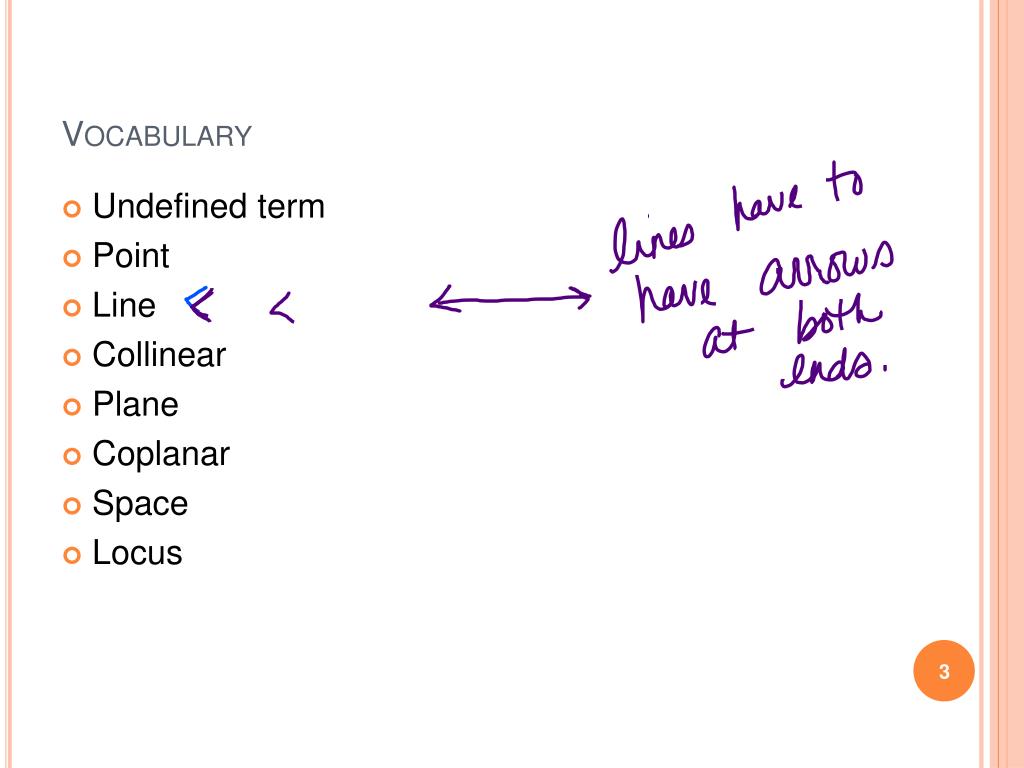 VOCABULARY
Undefined term
Point
Line
Collinear
Plane
Coplanar
Space
Locus
lines have to
have arrows
at both
ends.
3